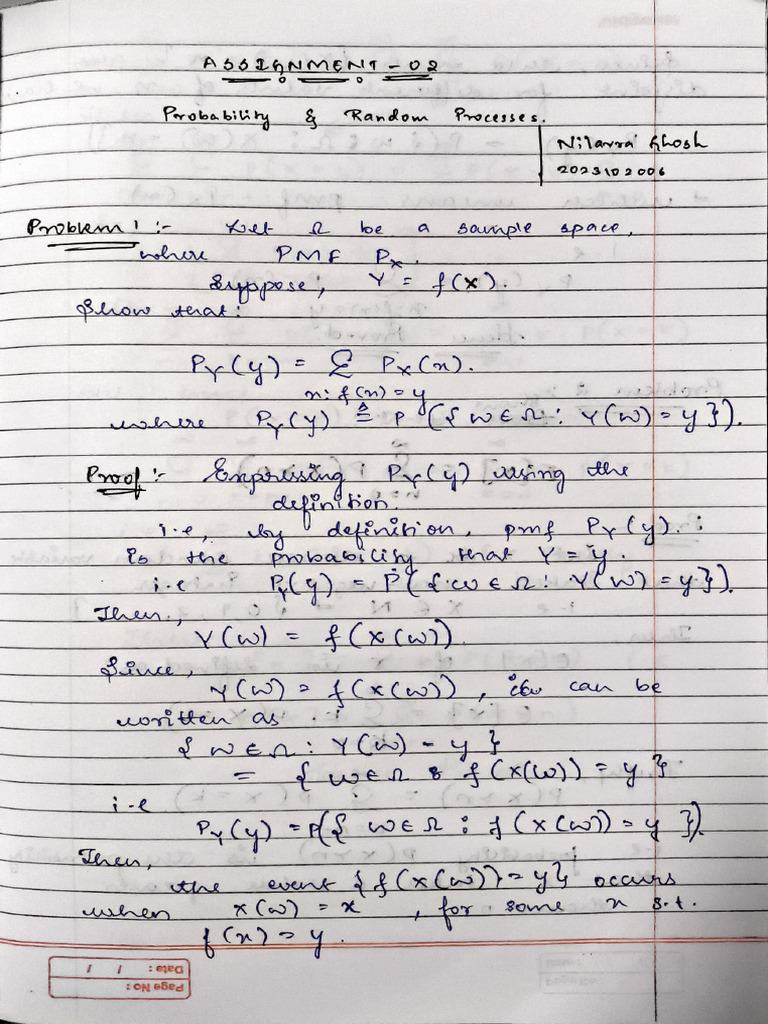 ASSIGNMENT-02
Probability & Random Processes.
Nilavra Ghosh
2023102006
Problem 1 :- Let Ω be a sample space,
where PMF Pₓ.
Suppose, Y = f(X).
Show that:
P_Y(y) = Σ Pₓ(x).
x: f(x) = y
where P_Y(y) ≜ P({ω ∈ Ω : Y(ω) = y}).
Proof :- Expressing P_Y(y) using the
definition.
i.e, by definition, pmf P_Y(y) :
is the probability that Y = y.
i.e P_Y(y) = P({ω ∈ Ω : Y(ω) = y}).
Then,
Y(ω) = f(X(ω)).
Since,
Y(ω) = f(X(ω)), can be
written as :
{ω ∈ Ω : Y(ω) = y}
= {ω ∈ Ω : f(X(ω)) = y}
i.e
P_Y(y) = P({ω ∈ Ω : f(X(ω)) = y}).
Then,
the event {f(X(ω)) = y} occurs
when X(ω) = x, for some x s.t.
f(x) = y.
Page No :
Date : / /